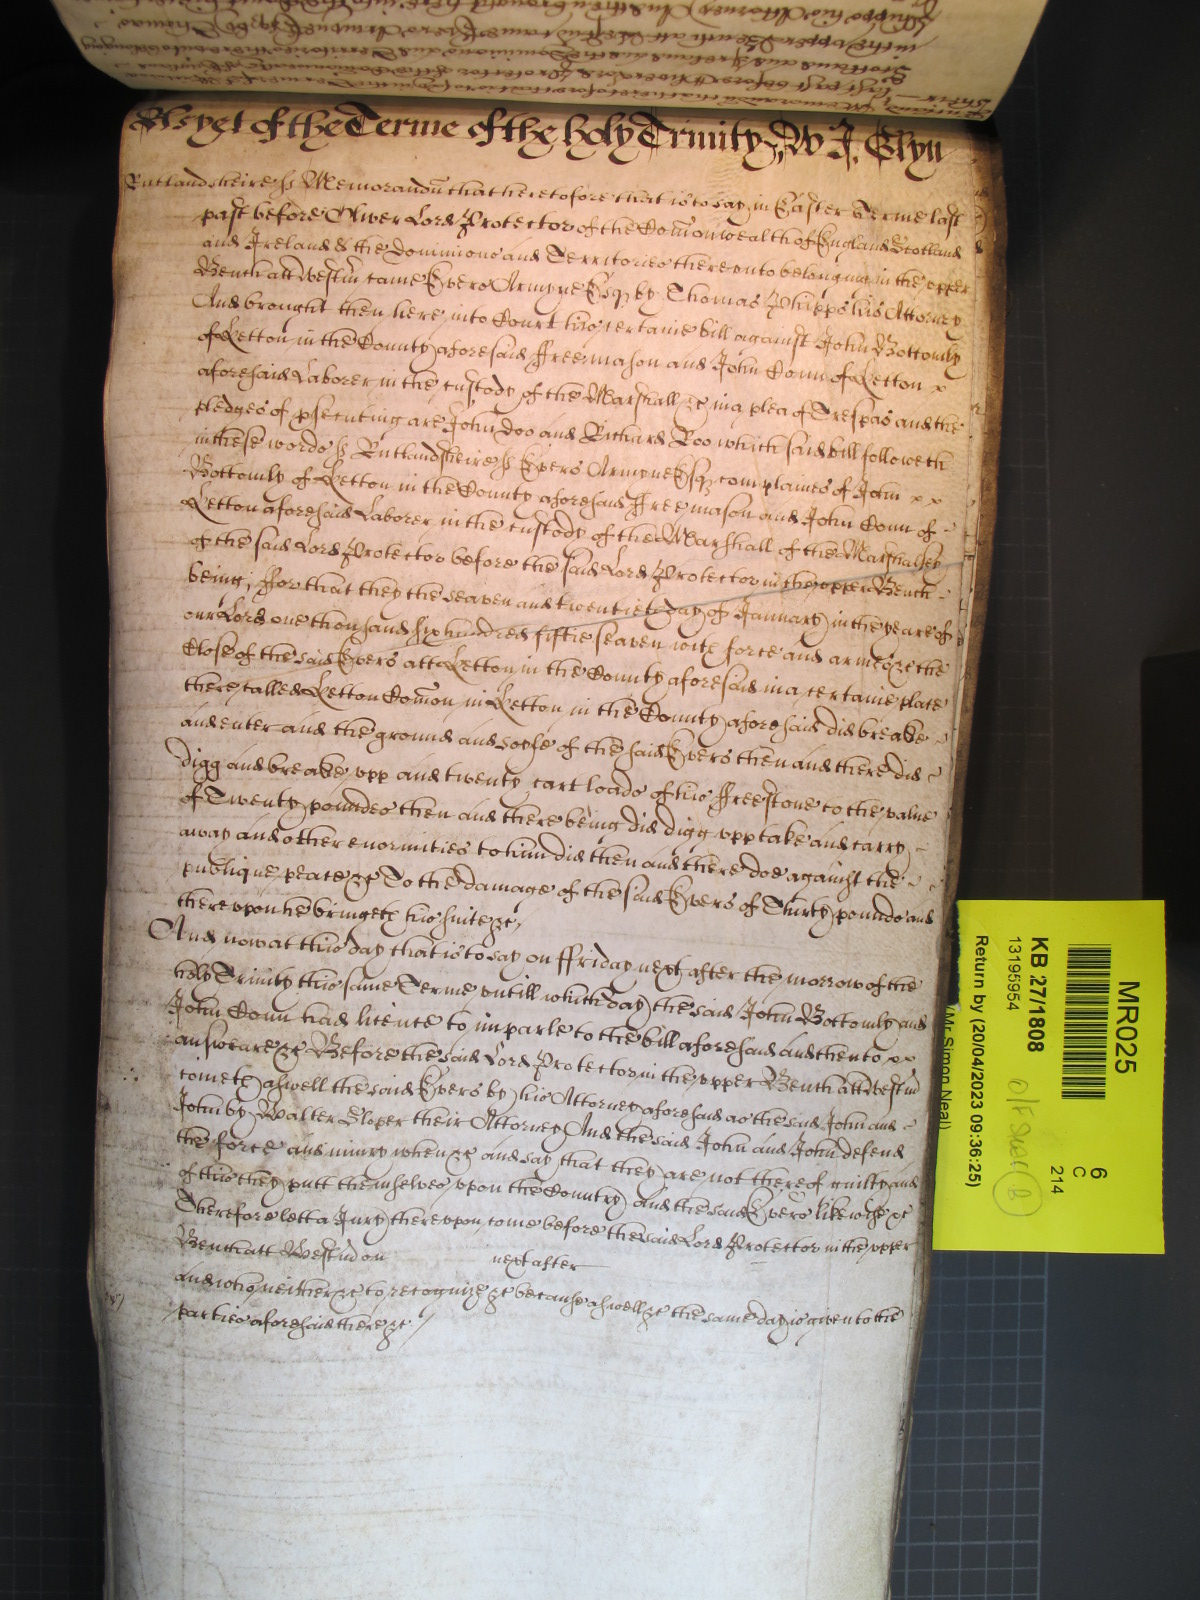 As yet of the Terme of the holy Trinity W J. Glyn
Rutlandsheire ss Memorandũ that heretofore that is to say in Easter Terme last
past before Oliver Lord Protector of the Com̃onwealth of England Scotland
and Ireland & the Dominions and Territories thereunto belonging in the upper
Bench att Westm̃ came Evers Armyne Esqr by Thomas Phipps his Attorney
And brought then here into Court his certaine bill against John Bottomly
of Ketton in the County aforesaid Freemason and John Conn of Ketton x
aforesaid Laborer in the custody of the Marshall &c in a plea of Trespas and the
pledges of psecuting are John Doo and Richard Roo which said bill followeth
in these words ss Rutlandsheire ss Evers Armyne Esqr complaines of John x x
Bottomly of Ketton in the County aforesaid Freemason and John Conn of
Ketton aforesaid Laborer in the custody of the Marshall of the Marshalsey
of the said Lord Protector before the said Lord Protector in the upper Bench
being; For that they the seaven and twentieth day of January in the yeare of
our Lord one thousand six hundred fiftie seaven with force and armes &c the
Close of the said Evers att Ketton in the County aforesaid in a certaine place
there called Ketton Com̃on in Ketton in the County aforesaid did breake
and enter and the ground and soyle of the said Evers then and there did
digg and breake upp and twenty cart loads of his Freestone to the value
of Twenty poundes then and there being did digg upp take and carry
away and other enormities to him did then and there doe against the
publique peace &c To the damage of the said Evers of Thirty pounds and
thereupon he bringeth his suite &c;
And now at this day that is to say on ffriday next after the morrow of the
holy Trinity this same Terme untill which day the said John Bottomly and
John Conn had licence to imparle to the bill aforesaid and then to x x
answeare &c Before the said Lord Protector in the upper Bench att Westm̃
cometh aswell the said Evers by his Attorney aforesaid as the said John and
John by Walter Sloper their Attorney And the said John and John defend
the force and iniury when &c and say that they are not thereof guilty and
of this they putt themselves upon the Country and the said Evers likewise &c
Therefore lett a Jury thereupon come before the said Lord Protector in the upper
Bench att Westm̃ on next after
and who neither &c to recognize &c because aswell &c the same day is given to the
parties aforesaid there &c
MR025
6
C
214
KB 27/1808
13195954
Return by (20/04/2023 09:36:25)
(Mr Simon Neal)